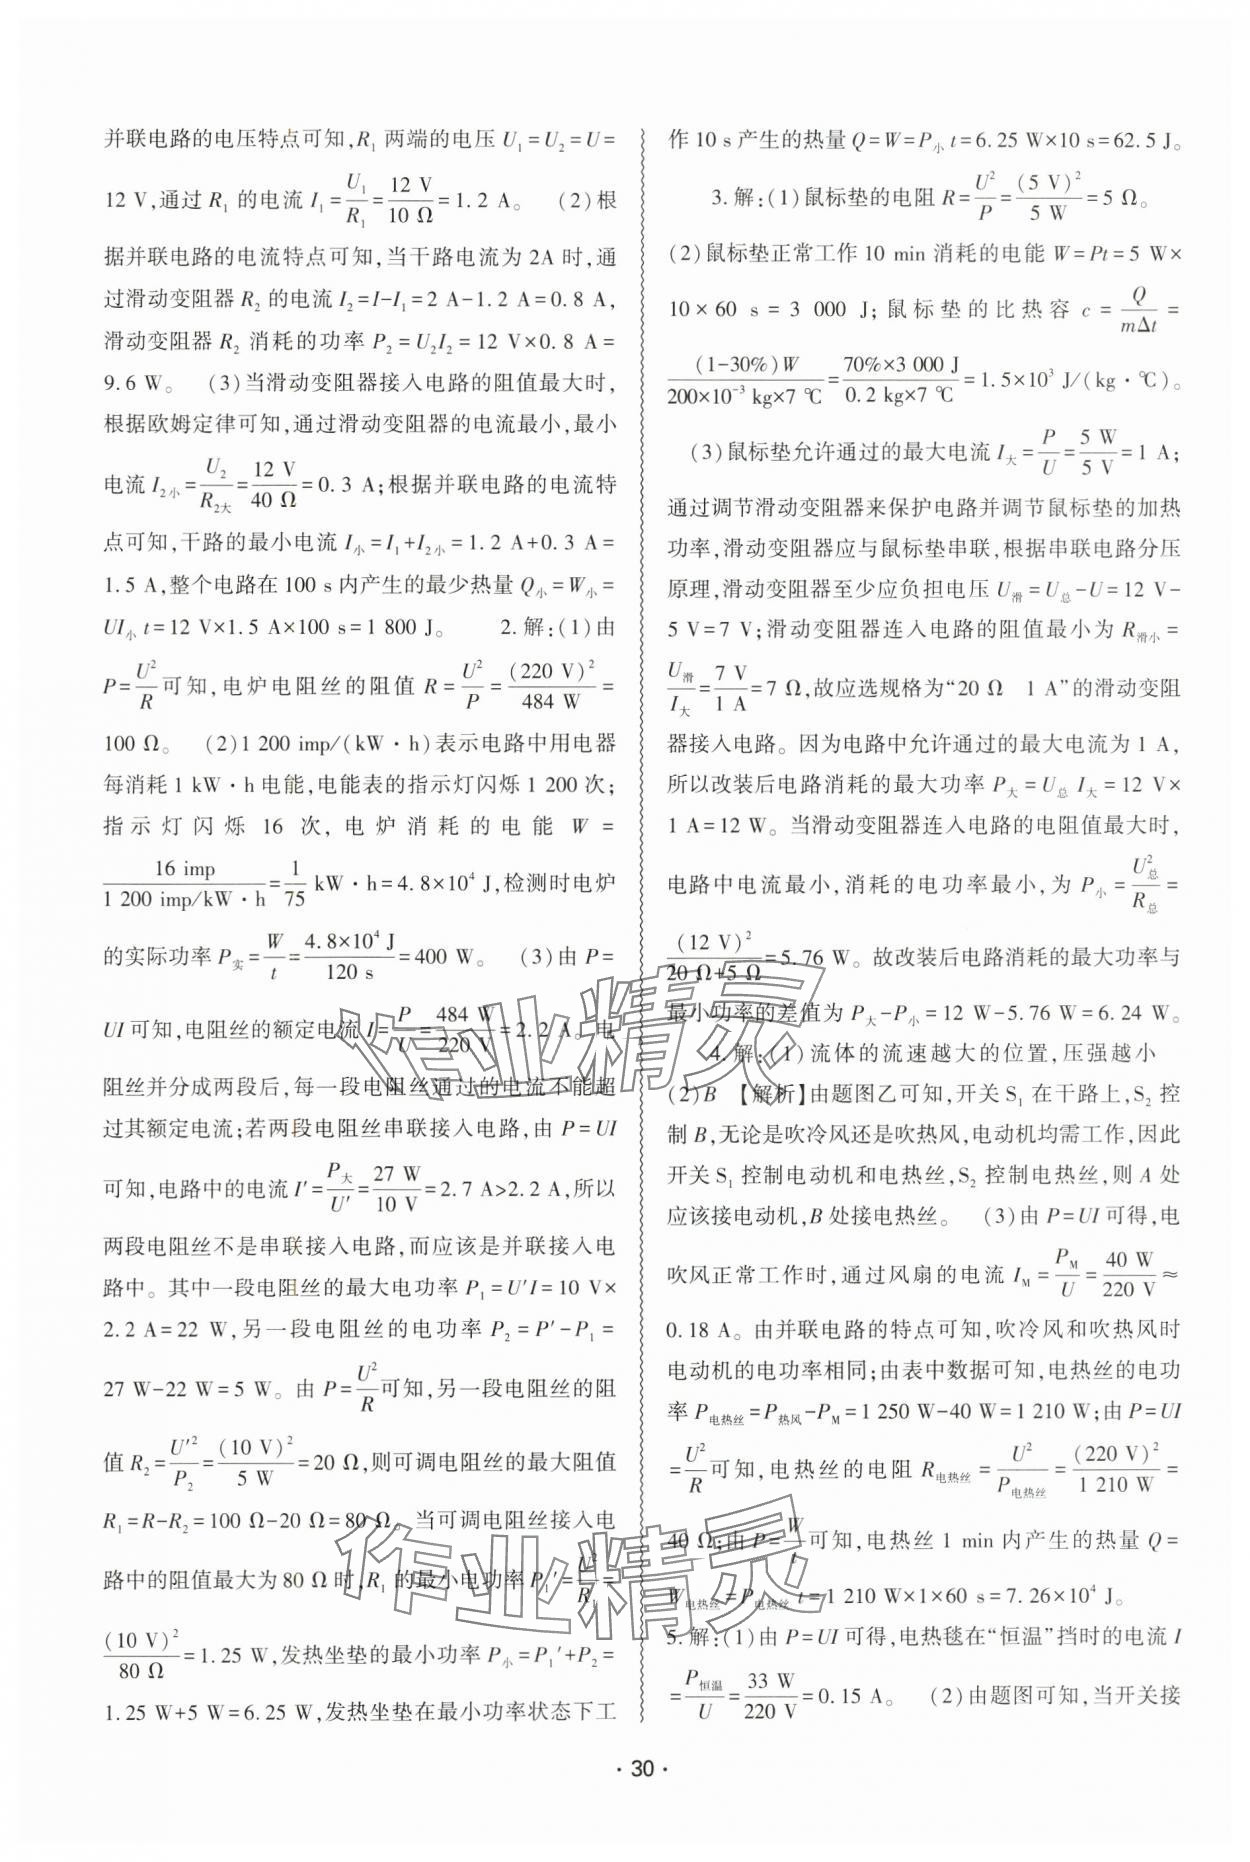 并联电路的电压特点可知,R₁ 两端的电压 U₁=U₂=U=
12 V,通过 R₁ 的电流 I₁=U₁/R₁=12 V/10 Ω=1.2 A。 (2)根
据并联电路的电流特点可知,当干路电流为 2A 时,通
过滑动变阻器 R₂ 的电流 I₂=I-I₁=2 A-1.2 A=0.8 A,
滑动变阻器 R₂ 消耗的功率 P₂=U₂I₂=12 V×0.8 A=
9.6 W。 (3)当滑动变阻器接入电路的阻值最大时,
根据欧姆定律可知,通过滑动变阻器的电流最小,最小
电流 I₂小=U₂/R₂大=12 V/40 Ω=0.3 A;根据并联电路的电流特
点可知,干路的最小电流 I小=I₁+I₂小=1.2 A+0.3 A=
1.5 A,整个电路在 100 s 内产生的最少热量 Q小=W小=
UI小 t=12 V×1.5 A×100 s=1 800 J。 2.解:(1)由
P=U²/R可知,电炉电阻丝的阻值 R=U²/P=(220 V)²/484 W=
100 Ω。 (2)1 200 imp/(kW·h)表示电路中用电器
每消耗 1 kW·h 电能,电能表的指示灯闪烁 1 200 次;
指示灯闪烁 16 次,电炉消耗的电能 W=
16 imp/1 200 imp/kW·h=1/75 kW·h=4.8×10⁴ J,检测时电炉
的实际功率 P实=W/t=4.8×10⁴ J/120 s=400 W。 (3)由 P=
UI 可知,电阻丝的额定电流 I=P/U=484 W/220 V=2.2 A。电
阻丝并分成两段后,每一段电阻丝通过的电流不能超
过其额定电流;若两段电阻丝串联接入电路,由 P=UI
可知,电路中的电流 I′=P大/U′=27 W/10 V=2.7 A>2.2 A,所以
两段电阻丝不是串联接入电路,而应该是并联接入电
路中。其中一段电阻丝的最大电功率 P₁=U′I=10 V×
2.2 A=22 W,另一段电阻丝的电功率 P₂=P′-P₁=
27 W-22 W=5 W。由 P=U²/R可知,另一段电阻丝的阻
值 R₂=U′²/P₂=(10 V)²/5 W=20 Ω,则可调电阻丝的最大阻值
R₁=R-R₂=100 Ω-20 Ω=80 Ω。当可调电阻丝接入电
路中的阻值最大为 80 Ω 时,R₁ 的最小电功率 P₁′=U²/R₁=
(10 V)²/80 Ω=1.25 W,发热坐垫的最小功率 P小=P₁′+P₂=
1.25 W+5 W=6.25 W,发热坐垫在最小功率状态下工
作 10 s 产生的热量 Q=W=P小 t=6.25 W×10 s=62.5 J。
3.解:(1)鼠标垫的电阻 R=U²/P=(5 V)²/5 W=5 Ω。
(2)鼠标垫正常工作 10 min 消耗的电能 W=Pt=5 W×
10×60 s=3 000 J;鼠标垫的比热容 c=Q/mΔt=
(1-30%)W/200×10⁻³ kg×7 ℃=70%×3 000 J/0.2 kg×7 ℃=1.5×10³ J/(kg·℃)。
(3)鼠标垫允许通过的最大电流 I大=P/U=5 W/5 V=1 A;
通过调节滑动变阻器来保护电路并调节鼠标垫的加热
功率,滑动变阻器应与鼠标垫串联,根据串联电路分压
原理,滑动变阻器至少应负担电压 U滑=U总-U=12 V-
5 V=7 V;滑动变阻器连入电路的阻值最小为 R滑小=
U滑/I大=7 V/1 A=7 Ω,故应选规格为“20 Ω 1 A”的滑动变阻
器接入电路。因为电路中允许通过的最大电流为 1 A,
所以改装后电路消耗的最大功率 P大=U总 I大=12 V×
1 A=12 W。当滑动变阻器连入电路的电阻值最大时,
电路中电流最小,消耗的电功率最小,为 P小=U²总/R总=
(12 V)²/20 Ω+5 Ω=5.76 W。故改装后电路消耗的最大功率与
最小功率的差值为 P大-P小=12 W-5.76 W=6.24 W。
4.解:(1)流体的流速越大的位置,压强越小
(2)B 【解析】由题图乙可知,开关 S₁ 在干路上,S₂ 控
制 B,无论是吹冷风还是吹热风,电动机均需工作,因此
开关 S₁ 控制电动机和电热丝,S₂ 控制电热丝,则 A 处
应该接电动机,B 处接电热丝。 (3)由 P=UI 可得,电
吹风正常工作时,通过风扇的电流 I_M=P_M/U=40 W/220 V≈
0.18 A。由并联电路的特点可知,吹冷风和吹热风时
电动机的电功率相同;由表中数据可知,电热丝的电功
率 P电热丝=P热风-P_M=1 250 W-40 W=1 210 W;由 P=UI
=U²/R可知,电热丝的电阻 R电热丝=U²/P电热丝=(220 V)²/1 210 W=
40 Ω;由 P=W/t可知,电热丝 1 min 内产生的热量 Q=
W电热丝=P电热丝 t=1 210 W×1×60 s=7.26×10⁴ J。
5.解:(1)由 P=UI 可得,电热毯在“恒温”挡时的电流 I
=P恒温/U=33 W/220 V=0.15 A。 (2)由题图可知,当开关接
·30·
作业精灵
作业精灵